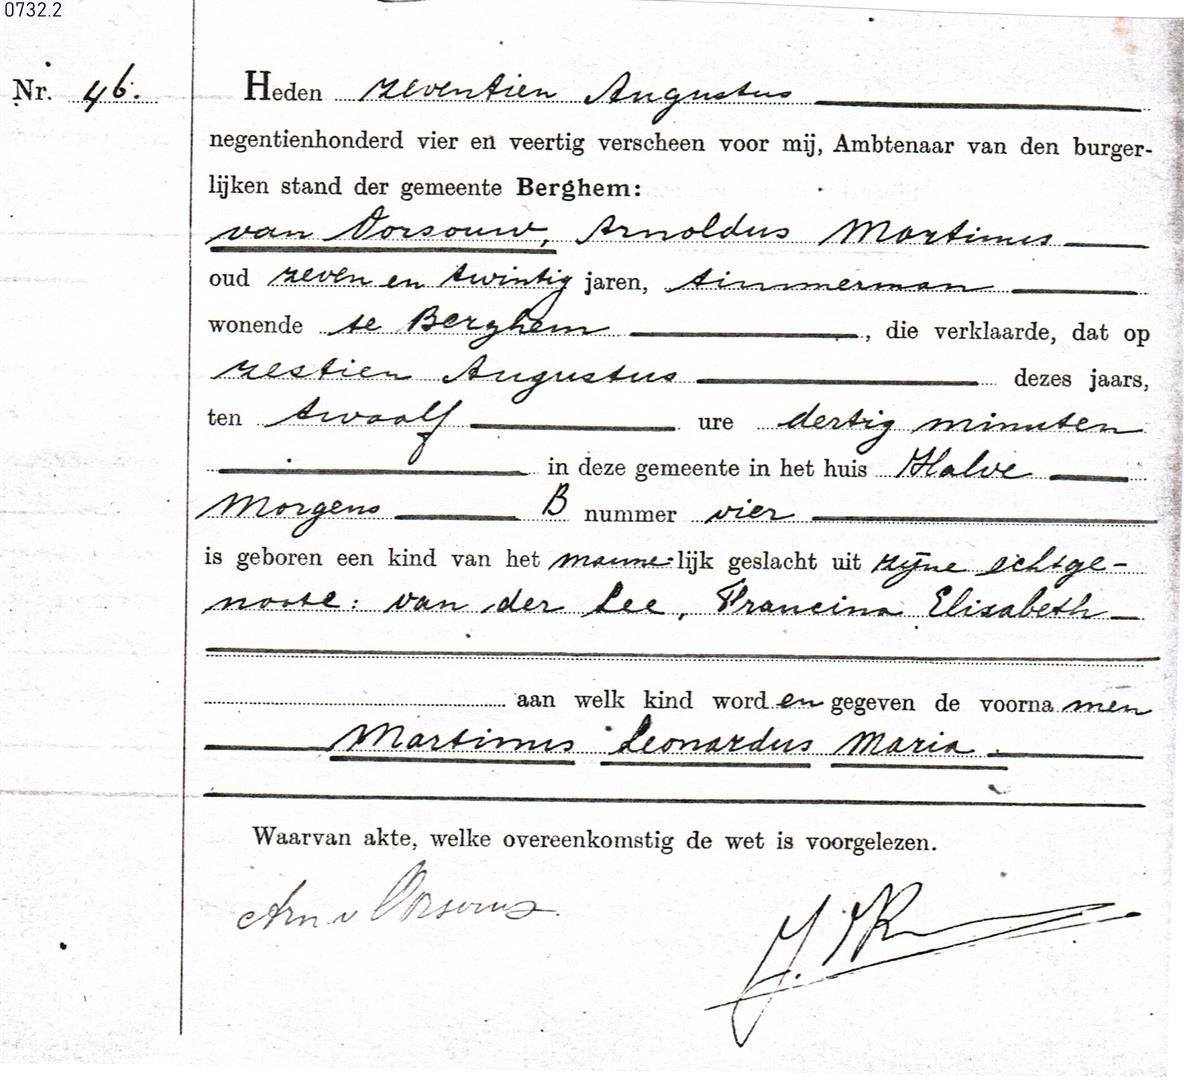 0732.2
Nr. 46.
Heden zeventien Augustus
negentienhonderd vier en veertig verscheen voor mij, Ambtenaar van den burger-
lijken stand der gemeente Berghem:
van Orsouw, Arnoldus Martinus
oud zeven en twintig jaren, timmerman
wonende te Berghem, die verklaarde, dat op
zestien Augustus dezes jaars,
ten twaalf ure dertig minuten
in deze gemeente in het huis Halve
Morgens B nummer vier
is geboren een kind van het manne-lijk geslacht uit zijne echtge-
noote: van der Lee, Francina Elisabeth
aan welk kind worden gegeven de voornamen
Martinus Leonardus Maria.
Waarvan akte, welke overeenkomstig de wet is voorgelezen.
Arn v Orsouw